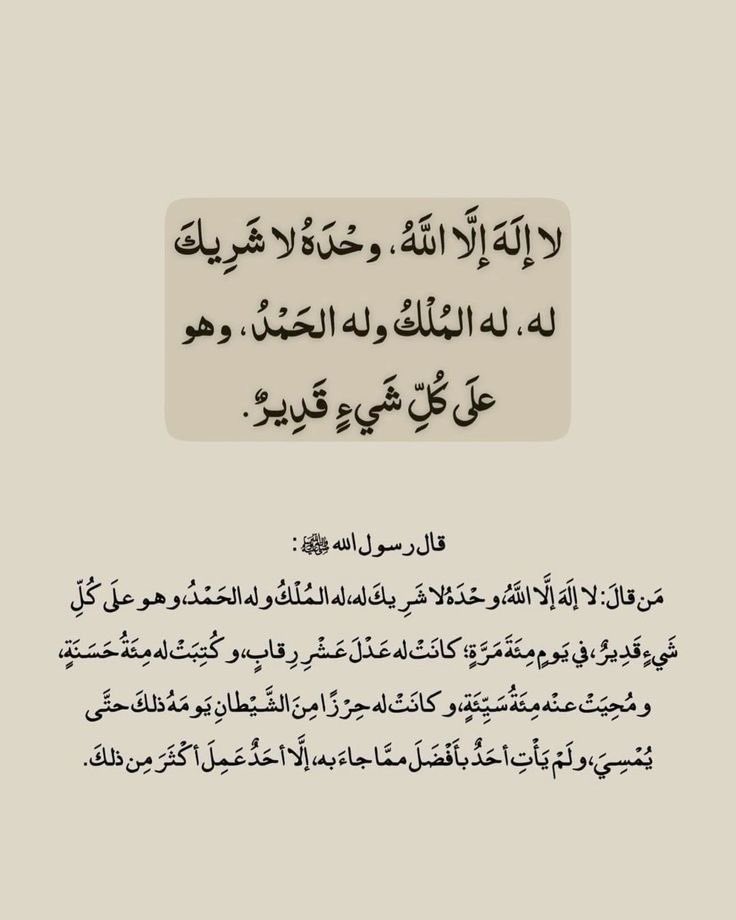 لا إِلَهَ إِلَّا اللَّهُ، وحْدَهُ لا شَرِيكَ
له، له المُلْكُ وله الحَمْدُ، وهو
علَى كُلِّ شَيءٍ قَدِيرٌ.
قال رسول الله ﷺ:
مَن قالَ: لا إلَهَ إلَّا اللَّهُ، وحْدَهُ لا شَرِيكَ له، له المُلْكُ وله الحَمْدُ، وهو علَى كُلِّ
شَيءٍ قَدِيرٌ، في يَومٍ مِئَةَ مَرَّةٍ؛ كانَتْ له عَدْلَ عَشْرِ رِقابٍ، وكُتِبَتْ له مِئَةُ حَسَنَةٍ،
ومُحِيَتْ عنْه مِئَةُ سَيِّئَةٍ، وكانَتْ له حِرْزًا مِنَ الشَّيْطانِ يَومَهُ ذلكَ حتَّى
يُمْسِيَ، ولَمْ يَأْتِ أحَدٌ بأَفْضَلَ ممَّا جاءَ به، إلَّا أحَدٌ عَمِلَ أكْثَرَ مِن ذلكَ.